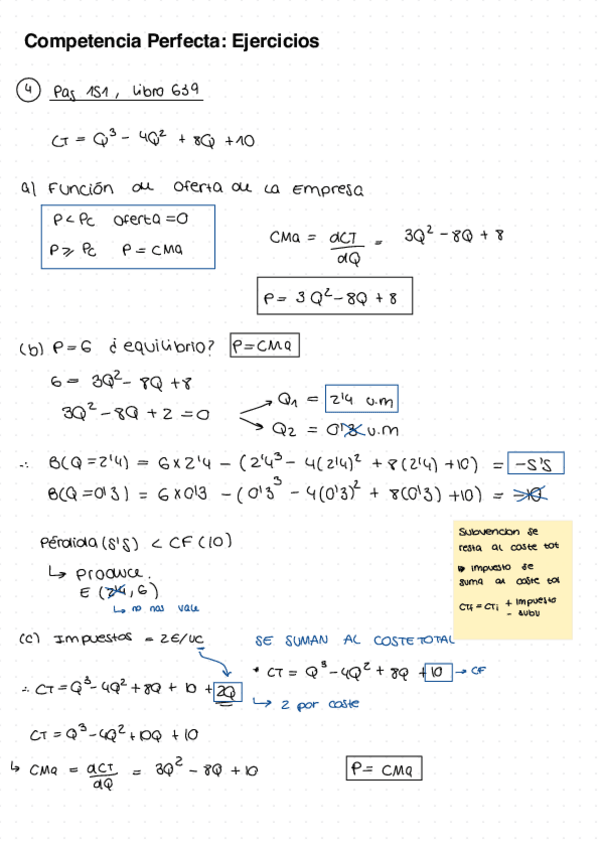 Competencia Perfecta: Ejercicios
4 Pag 151, Libro 639
CT = Q³ - 4Q² + 8Q + 10
a) Función de oferta de la empresa
P < Pc oferta = 0
P ⩾ Pc P = CMa
CMa = dCT/dQ = 3Q² - 8Q + 8
P = 3Q² - 8Q + 8
(b) P = 6 ¿equilibrio? P = CMa
6 = 3Q² - 8Q + 8
3Q² - 8Q + 2 = 0
Q₁ = 2'4 u.m
Q₂ = 0'3 u.m
∴ B(Q = 2'4) = 6 x 2'4 - (2'4³ - 4(2'4)² + 8(2'4) + 10) = -5'5
B(Q = 0'3) = 6 x 0'3 - (0'3³ - 4(0'3)² + 8(0'3) + 10) = -10
Pérdida (5'5) < CF (10)
↳ produce.
E (2'4, 6)
↳ no nos vale
Subvencion se
resta al coste tot
impuesto se
suma al coste tot
CTf = CTi + impuesto
- subv
(c) Impuestos = 2€/uc SE SUMAN AL COSTE TOTAL
* CT = Q³ - 4Q² + 8Q + 10 → CF
∴ CT = Q³ - 4Q² + 8Q + 10 + 2Q
↳ 2 por coste
CT = Q³ - 4Q² + 10Q + 10
↳ CMa = dCT/dQ = 3Q² - 8Q + 10
P = CMa